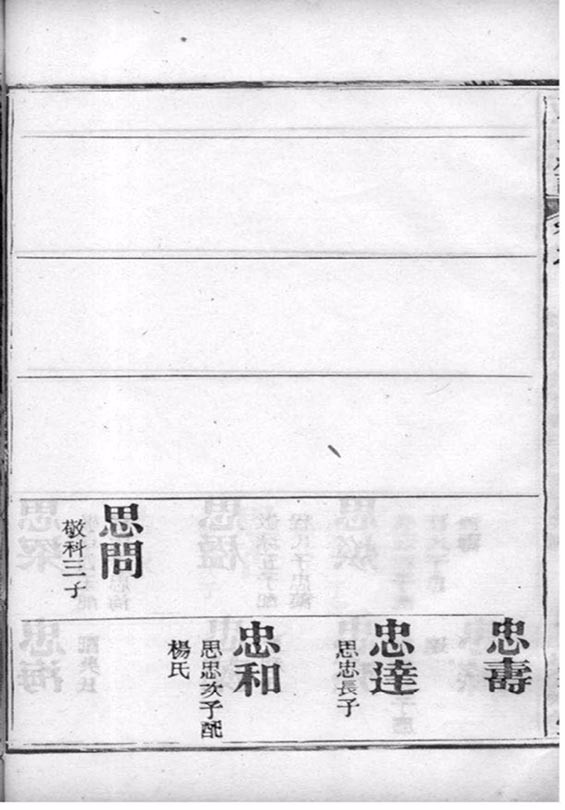 思問
敬科三子
忠壽
忠達
思忠長子
忠和
思忠次子配
楊氏